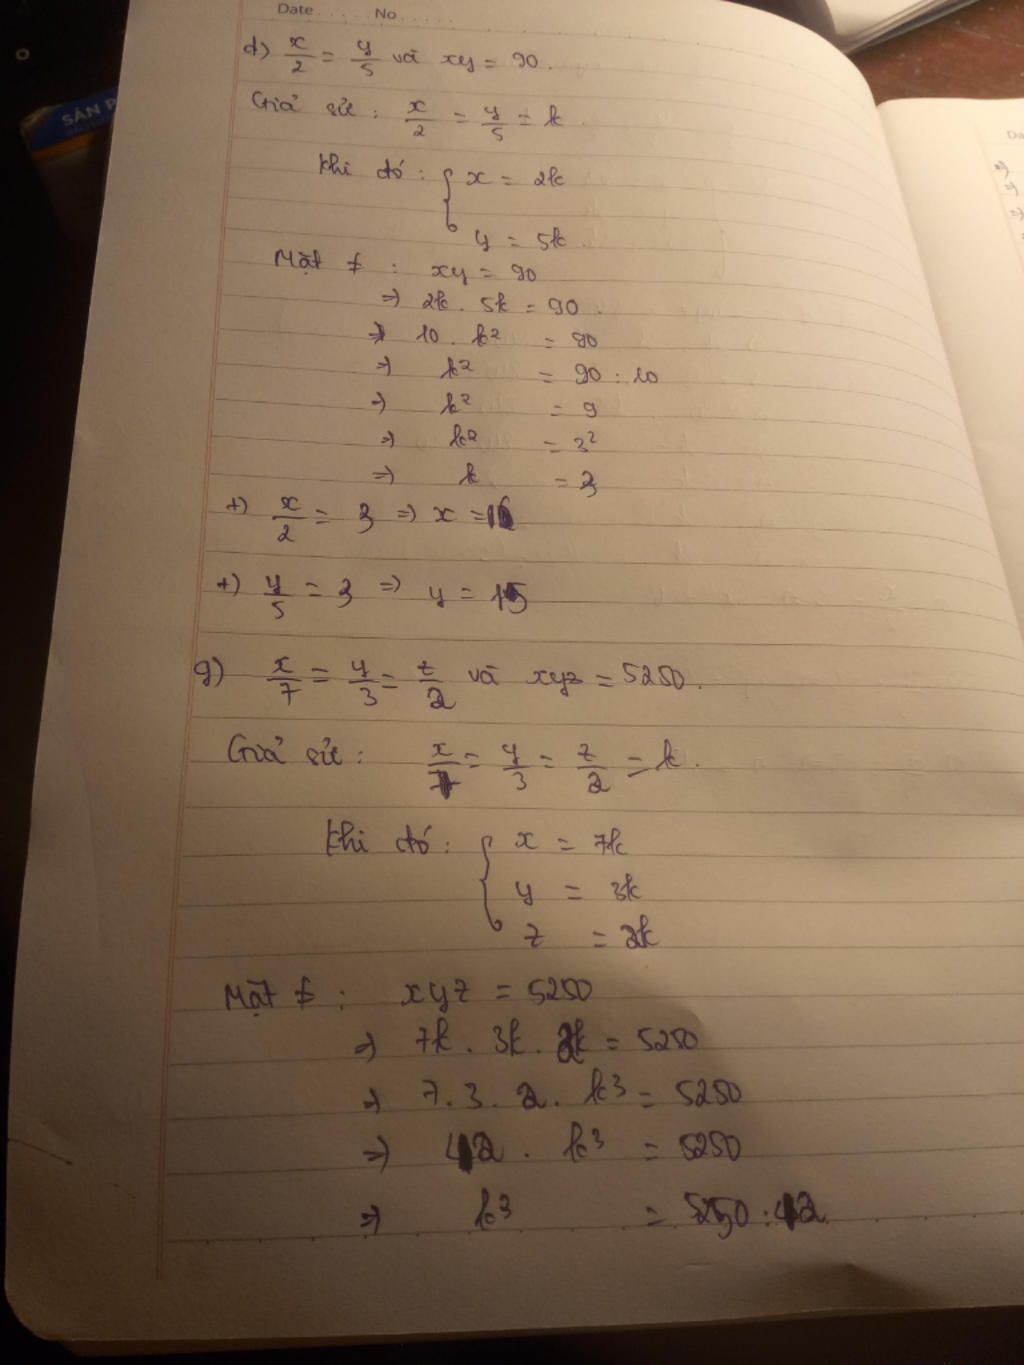 Date ..... No ......
SẢN P
Da
d) x/2 = y/5 và xy = 90.
Giả sử : x/2 = y/5 = k.
Khi đó : { x = 2k
y = 5k.
Mặt ≠ : xy = 90
=> 2k . 5k = 90.
=> 10 . k² = 90
=> k² = 90 : 10
=> k² = 9
=> k² = 3²
=> k = 3
+) x/2 = 3 => x =
+) y/5 = 3 => y = 15
g) x/7 = y/3 = z/2 và xyz = 5250.
Giả sử : x/7 = y/3 = z/2 = k.
Khi đó : { x = 7k
y = 3k
z = 2k
Mặt ≠ : xyz = 5250
=> 7k . 3k . 2k = 5250
=> 7 . 3 . 2 . k³ = 5250
=> 42 . k³ = 5250
=> k³ = 5250 : 42